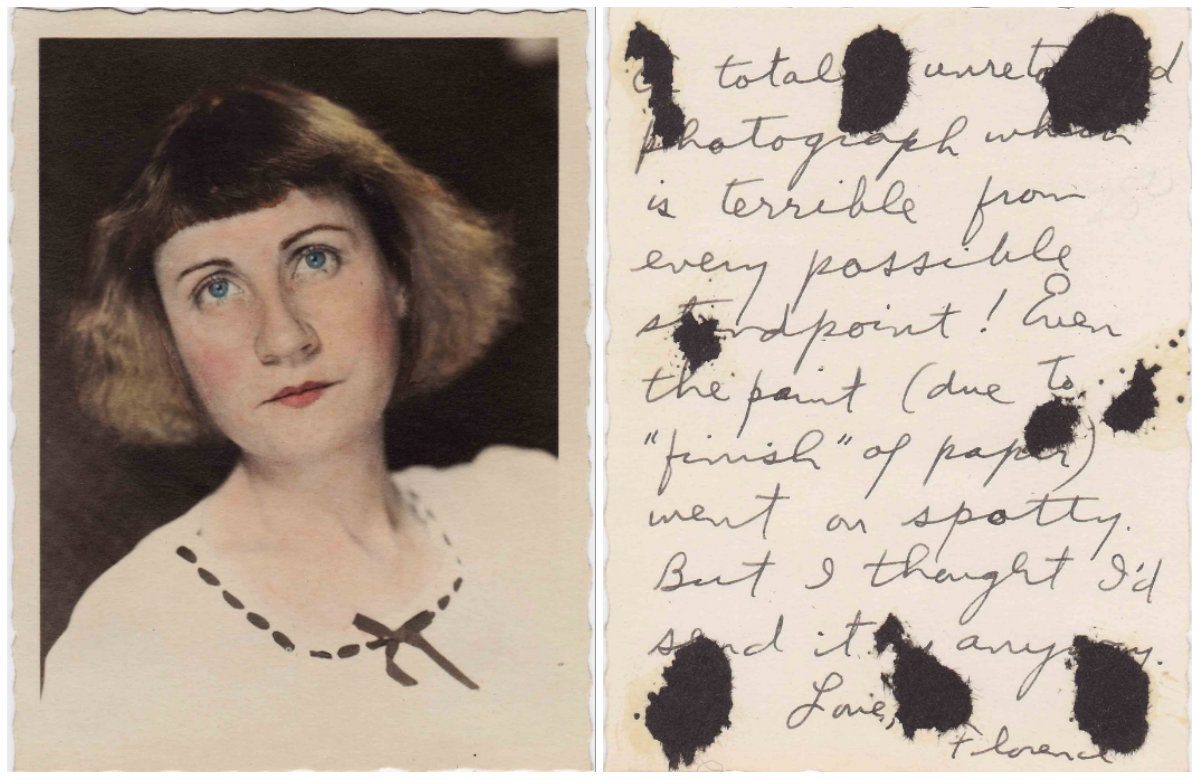 a totally unretouched
photograph which
is terrible from
every possible
standpoint! Even
the paint (due to
"finish" of paper)
went on spotty.
But I thought I'd
send it anyway.
Love,
Florence